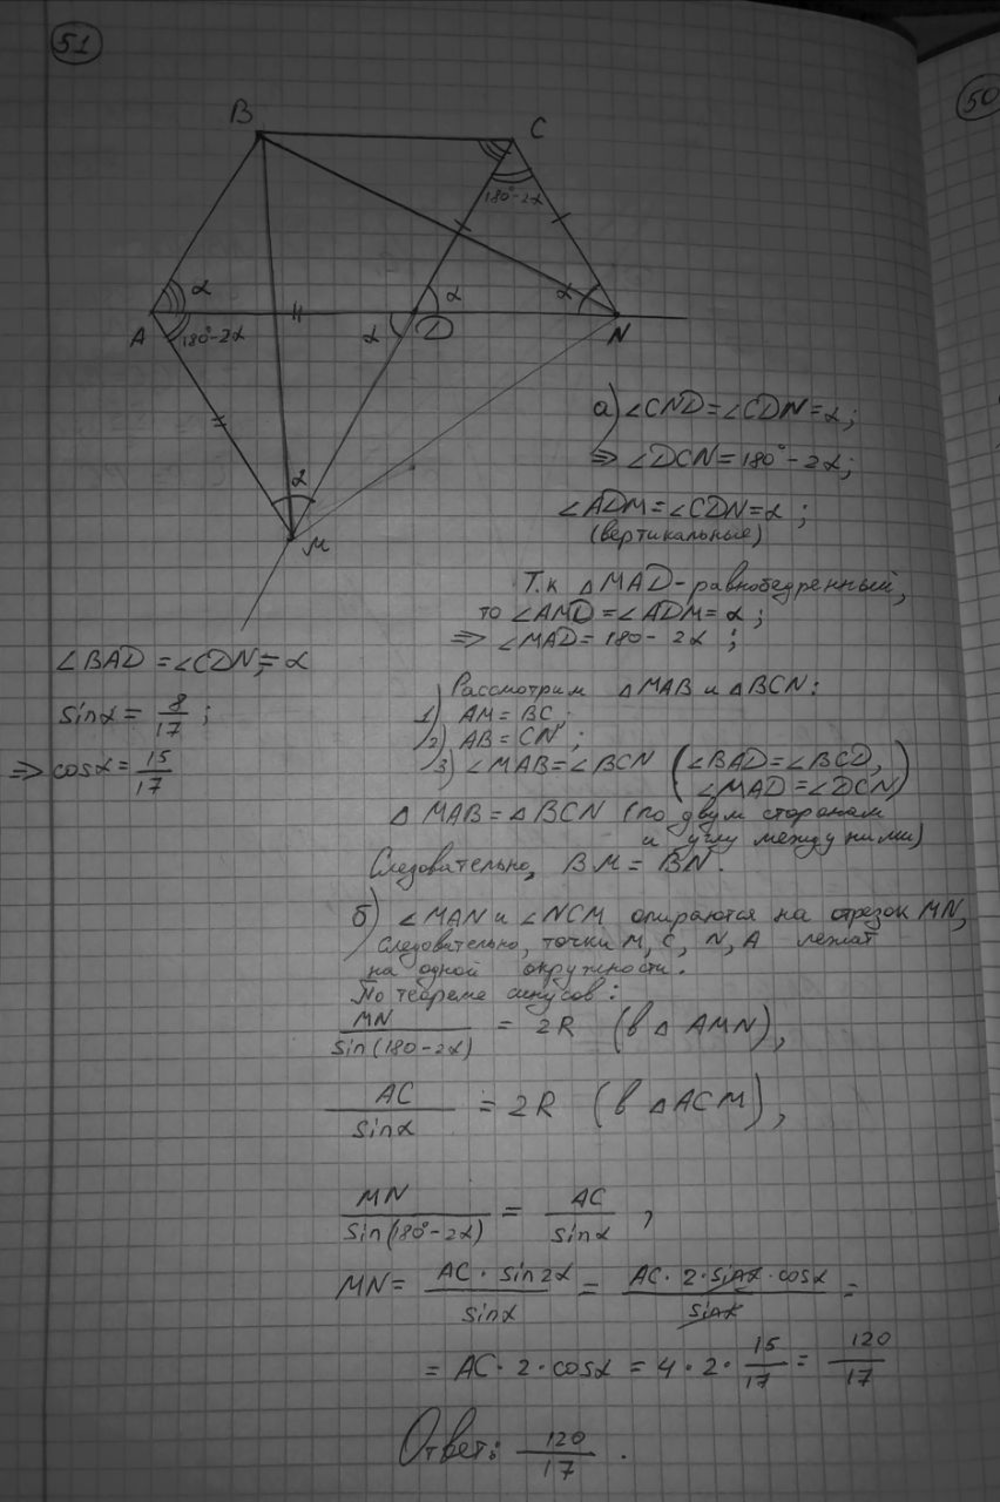 51
50
B
C
180°-2α
α
α
α
A
180°-2α
α
D
N
α
M
а) ∠CND=∠CDN=α;
⇒ ∠DCN=180°-2α;
∠ADM=∠CDN=α;
(вертикальные)
Т.к △MAD-равнобедренный,
то ∠AMD=∠ADM=α;
⇒ ∠MAD=180-2α;
∠BAD=∠CDN=α
sinα= 8/17;
⇒ cosα= 15/17
Рассмотрим △MAB и △BCN:
1) AM=BC;
2) AB=CN;
3) ∠MAB=∠BCN (∠BAD=∠BCD,
∠MAD=∠DCN)
△MAB=△BCN (по двум сторонам
и углу между ними)
Следовательно, BM=BN.
б) ∠MAN и ∠NCM опираются на отрезок MN,
следовательно, точки M, C, N, A лежат
на одной окружности.
По теореме синусов:
MN/sin(180-2α) = 2R (в △AMN),
AC/sinα = 2R (в △ACM),
MN/sin(180°-2α) = AC/sinα,
MN= AC·sin2α/sinα = AC·2·sinα·cosα/sinα =
= AC·2·cosα = 4·2·15/17 = 120/17
Ответ: 120/17.